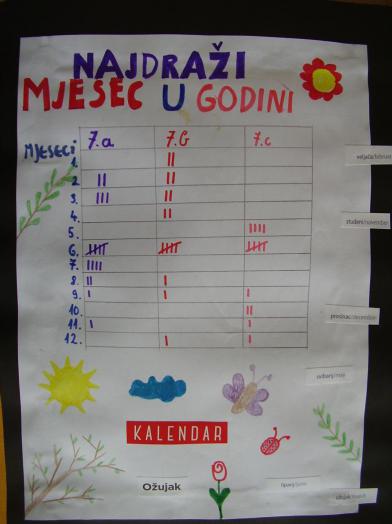 NAJDRAŽI
MJESEC U GODINI
MJESECI 7.a 7.b 7.c
1. II
2. II II
3. III II
4. II
5. IIII
6. IIII IIII IIII
7. IIII
8. II I
9. I I I
10. II
11. I I
12. I I
veljača/februar
studeni/novembar
prosinac/decembar
svibanj/maj
KALENDAR
Ožujak
lipanj/juni
ožujak/mart